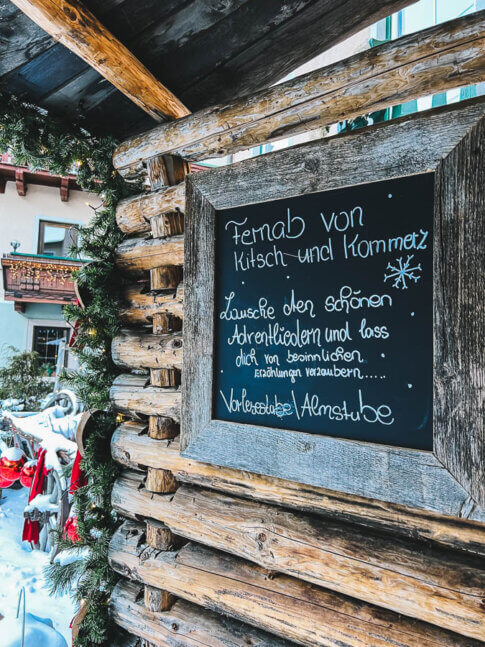 Fernab von
Kitsch und Kommerz
Lausche den schönen
Adventliedern und lass
dich von besinnlichen
Erzählungen verzaubern.....
Vorlesestube/Almstube